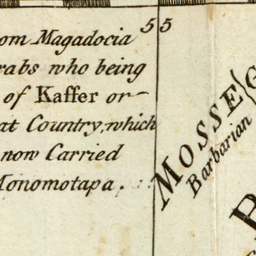 om Magadocia
rabs who being
of Kaffer or
at Country, which
now Carried
Monomotapa.
55
MOSSE
Barbarian